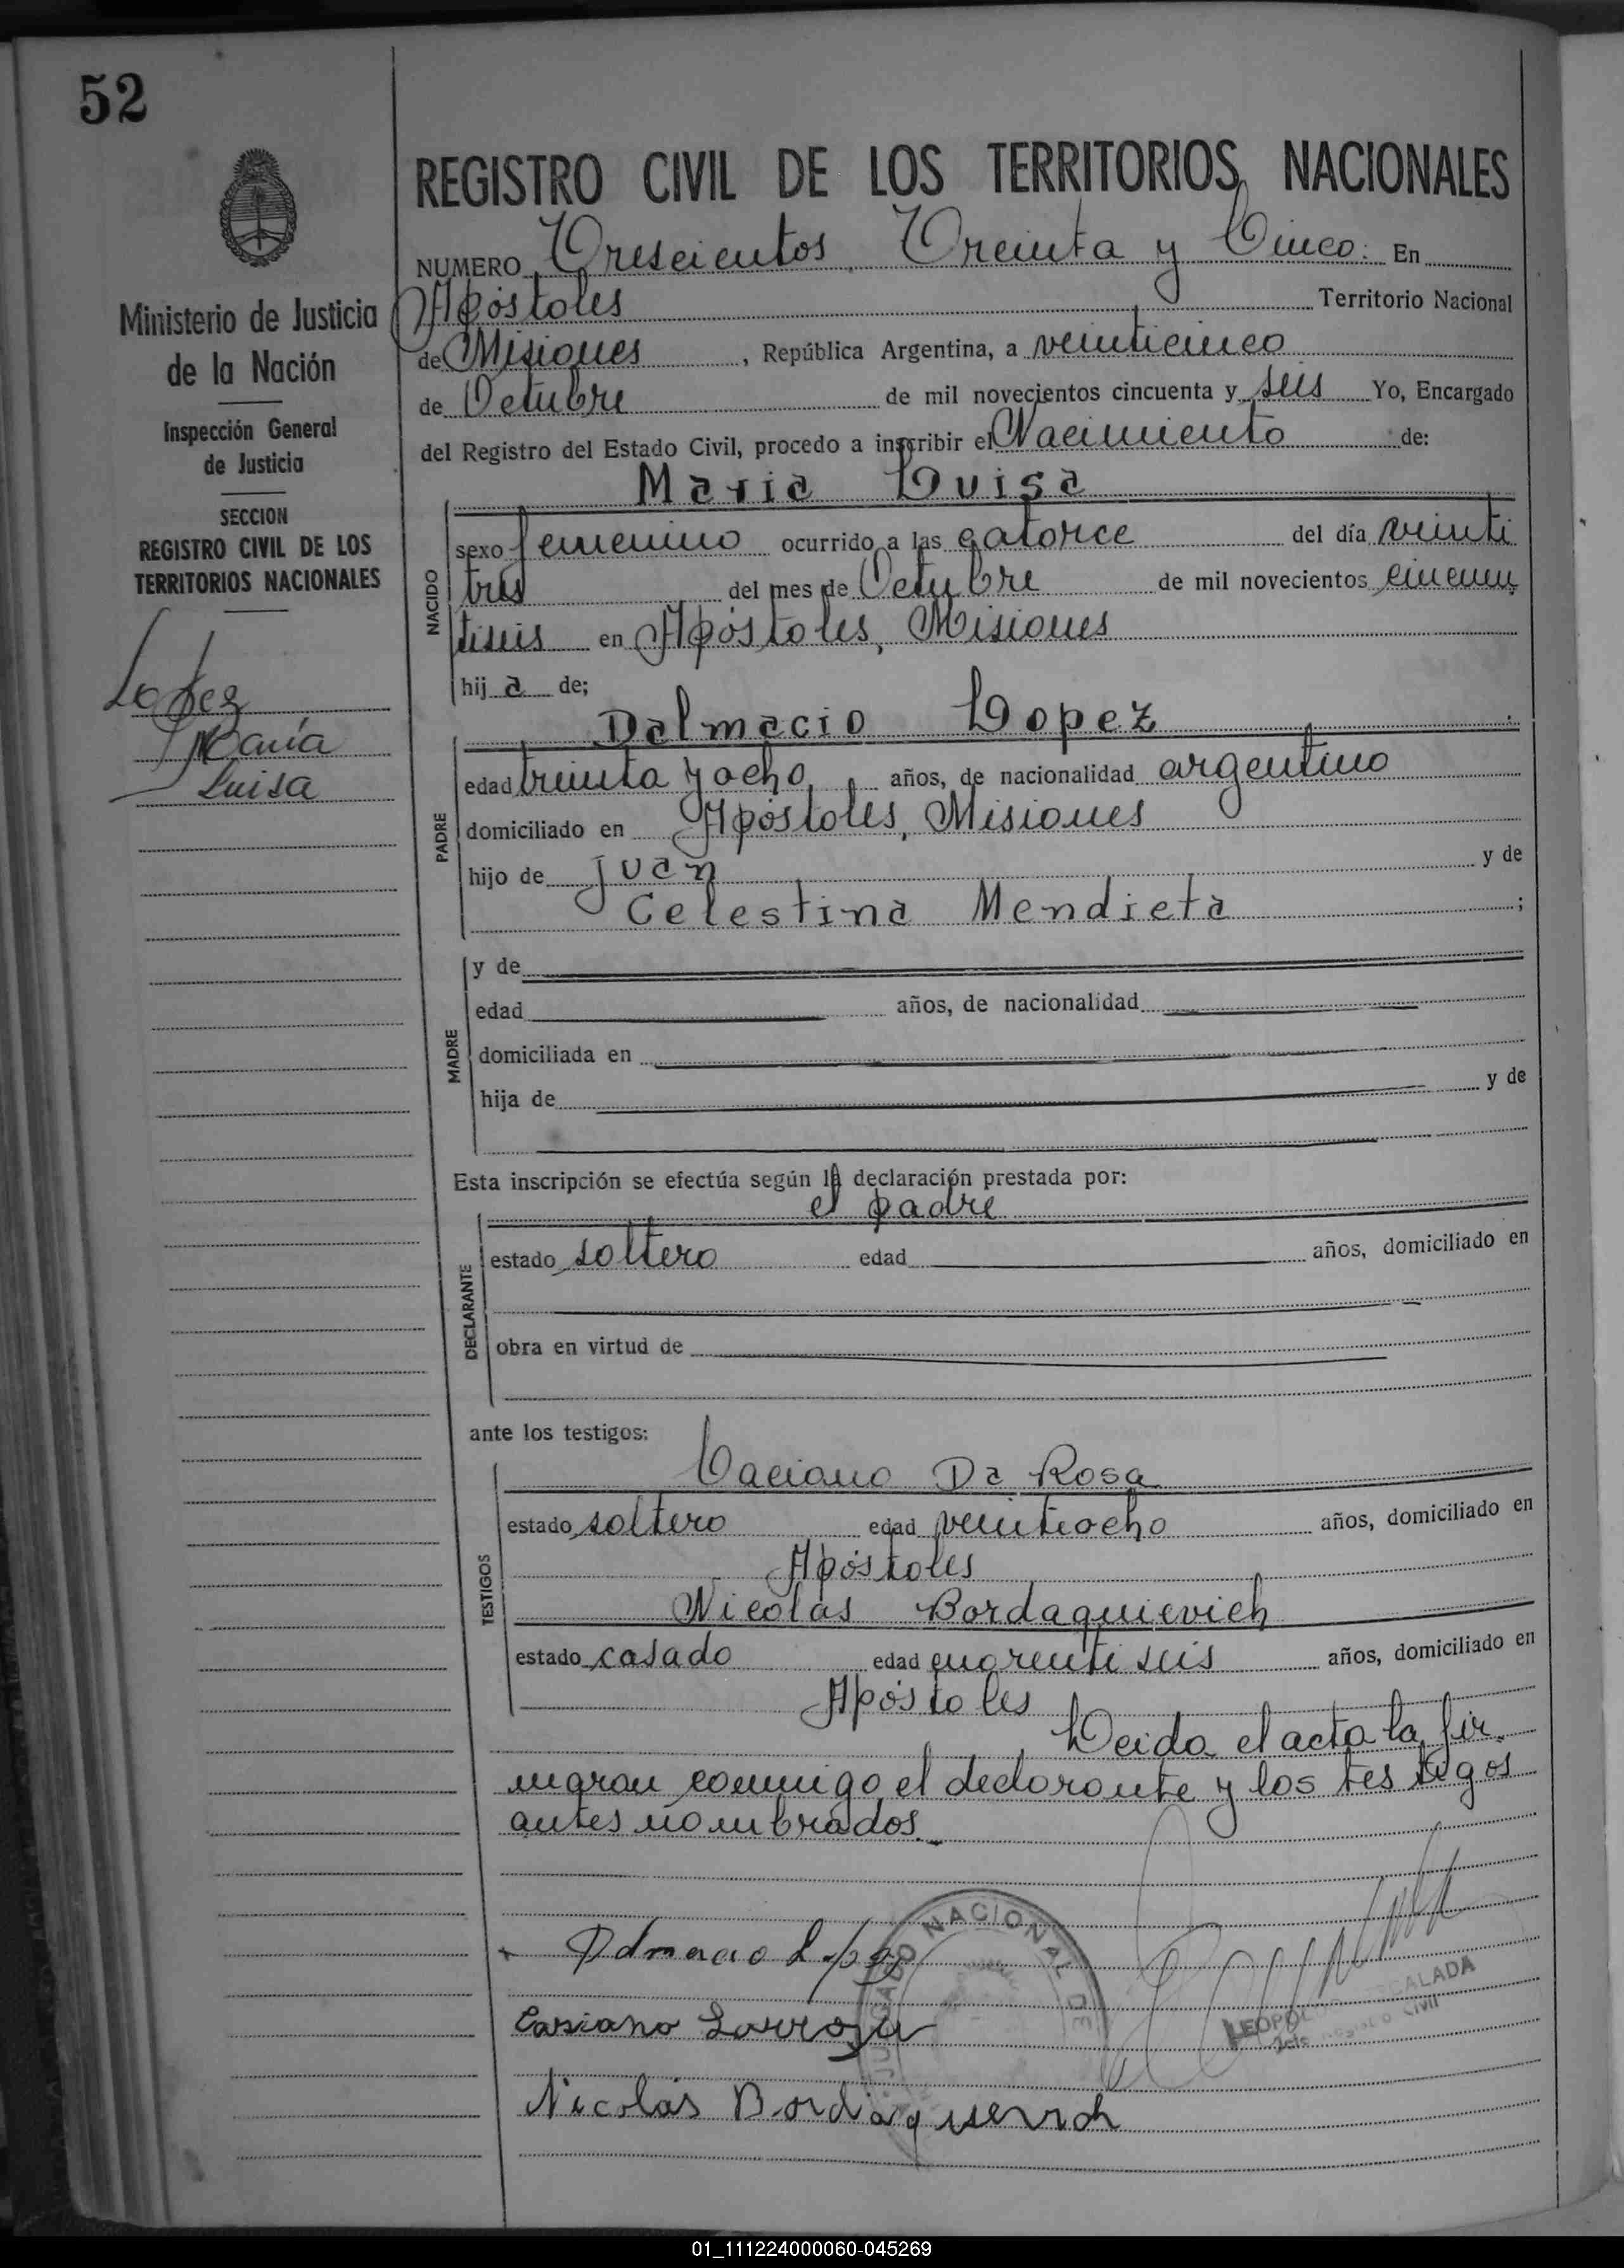 52
REGISTRO CIVIL DE LOS TERRITORIOS NACIONALES
NUMERO Trescientos Treinta y Cinco. En
Apóstoles Territorio Nacional
de Misiones, República Argentina, a veinticinco
de Octubre de mil novecientos cincuenta y seis Yo, Encargado
del Registro del Estado Civil, procedo a inscribir el Nacimiento de:
Maria Luisa
NACIDO
sexo femenino ocurrido a las catorce del día veinti
tres del mes de Octubre de mil novecientos cincuen
tiseis en Apóstoles, Misiones
hij a de;
Dalmacio Lopez
PADRE
edad treinta y ocho años, de nacionalidad argentino
domiciliado en Apóstoles, Misiones
hijo de Juan y de
Celestina Mendieta ;
MADRE
y de
edad años, de nacionalidad
domiciliada en
hija de y de
Esta inscripción se efectúa según la declaración prestada por:
el padre
DECLARANTE
estado soltero edad años, domiciliado en
obra en virtud de
ante los testigos:
TESTIGOS
Caciano Da Rosa
estado soltero edad veintiocho años, domiciliado en
Apóstoles
Nicolás Bordaquievich
estado casado edad cuarentiseis años, domiciliado en
Apóstoles
Leida el acta la fir
maron conmigo el declarante y los testigos
antes nombrados.
Dalmacio Lopez
Nicolás
JUZGADO NACIONAL DE
ESCALADA
Civil
Ministerio de Justicia
de la Nación
Inspección General
de Justicia
SECCION
REGISTRO CIVIL DE LOS
TERRITORIOS NACIONALES
Lopez
María
Luisa
01_111224000060-045269